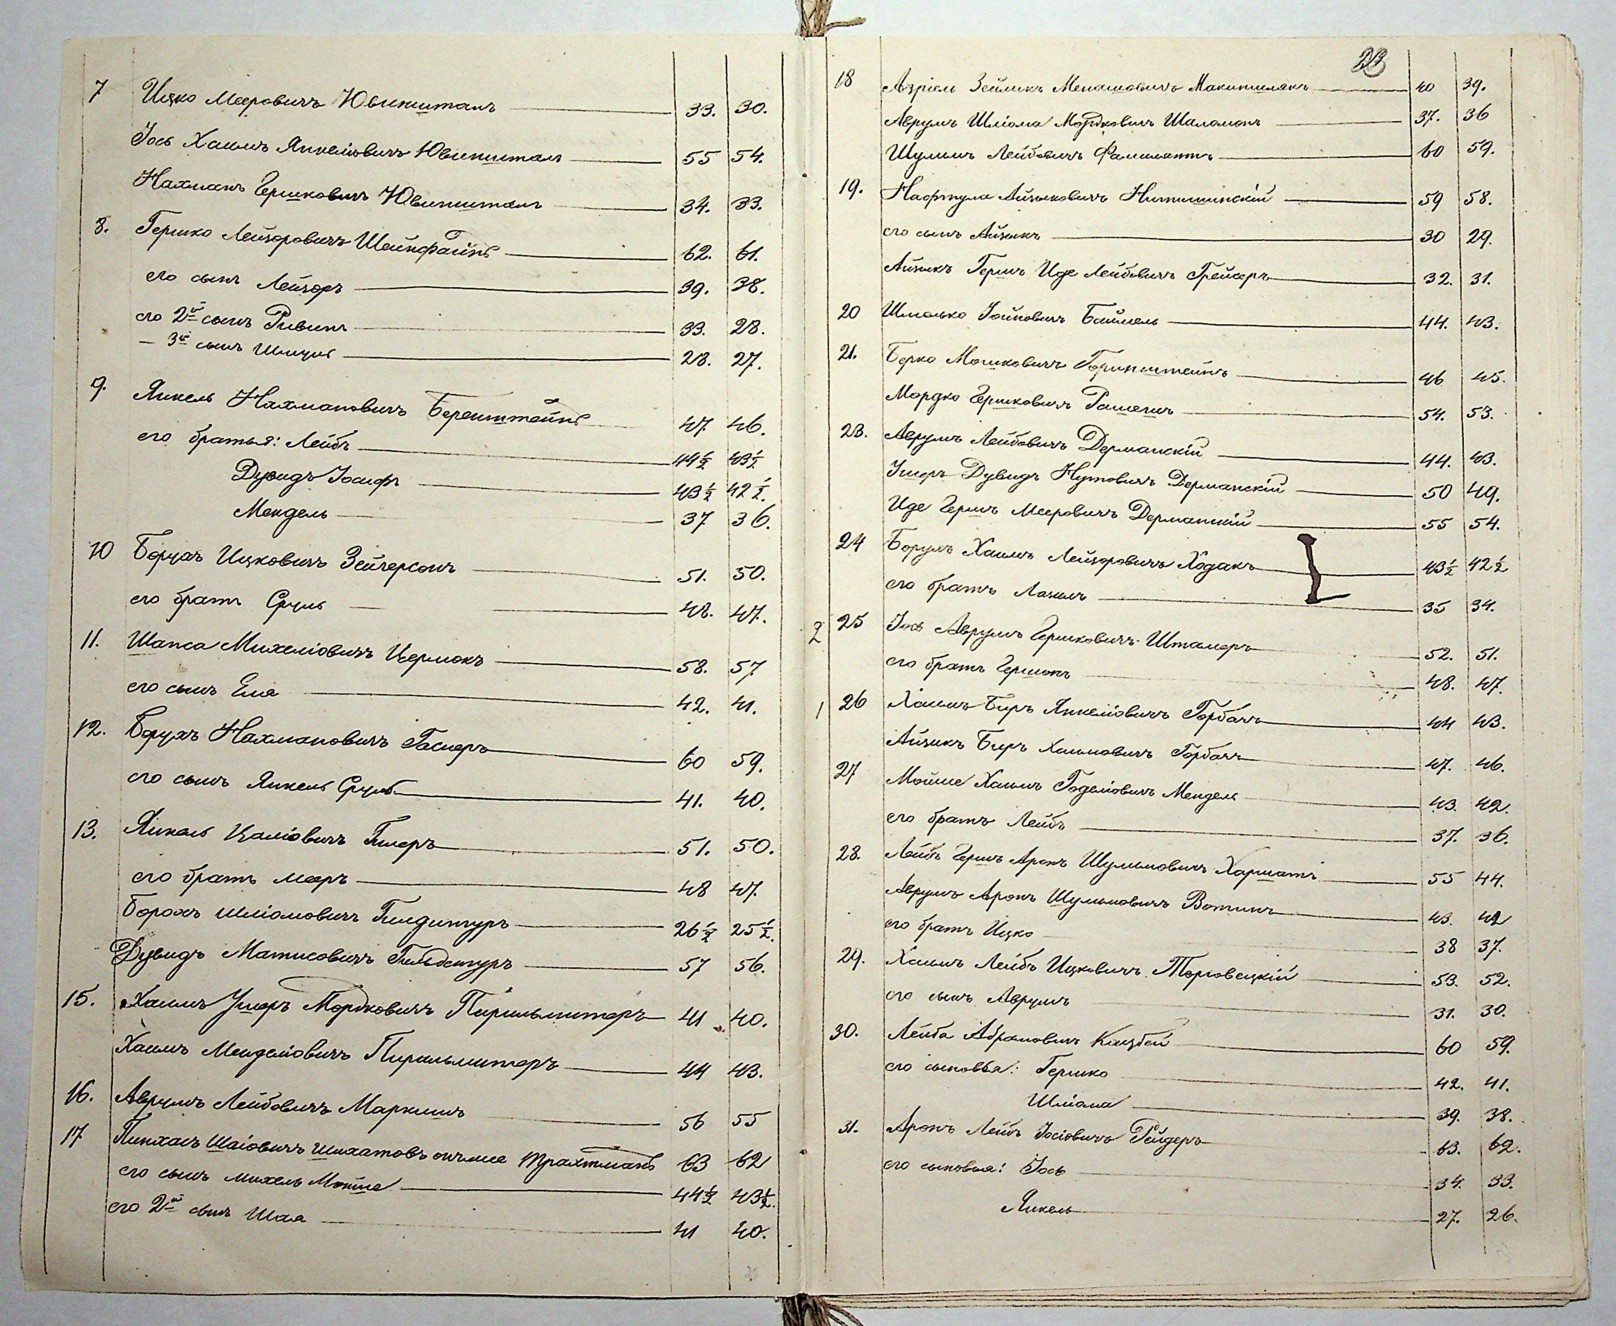 7 Ицко Мееровичъ Ювинштапъ 33. 30.
Іось Хаимъ Янкеліовичъ Ювинштап 55 54.
Нахманъ Гершковичъ Ювинштапъ 34. 33.
8. Гершко Лейзоровичъ Шейнфайнъ 62. 61.
его сынъ Лейзоръ 39. 38.
его 2й сынъ Ривинъ 33. 28.
— 3й сынъ Шмуль 28. 27.
9. Янкель Нахмановичъ Беренштейнъ 47 46.
его братья: Лейбъ 44½ 43½
Дувидъ Іосифъ 43½ 42½.
Мендель 37 36.
10 Борухъ Ицковичъ Зейгерсонъ 51. 50.
его братъ Сруль 48. 47.
11. Шапса Михеліовичъ Цермокъ 58. 57
его сынъ Еля 42. 41.
12. Борухъ Нахмановичъ Гаснеръ 60 59.
его сынъ Янкель Сруль 41. 40.
13. Янкель Цаліовичъ Гилеръ 51. 50.
его братъ Мееръ 48 47.
Борохъ Шліомовичъ Гилдингуръ 26½ 25½.
Дувидъ Матисовичъ 57 56.
15. Хаимъ Ушеръ Мордковичъ Пирильмитеръ 41 40.
Хаимъ Менделіовичъ Пирильмитеръ 44 43.
16. Аврумъ Лейбовичъ Маркишъ 56 55
17 Пинхасъ Шаіовичъ Шихатовъ онъ мсе Трахтманъ 63 62
его сынъ Михель Мойше 44½ 43½.
его 2й сынъ Шая 41 40.
18 Азріель Зейликъ Менашовичъ 40 39.
Аврумъ Шліома Мордковичъ Шаломонъ 37. 36
Шулимъ Лейбовичъ 60 59.
19. Нафтула Айзиковичъ Нитишинскій 59 58.
его сынъ Айзикъ 30 29.
Айзикъ Гершъ Иде Лейбовичъ Грейсеръ 32. 31.
20 Шмилько Іойновичъ Баймель 44. 43.
21. Берко Мошковичъ Горинштейнъ 46 45.
Мордко Гершковичъ Рашегин 54. 53.
23. Аврумъ Лейбовичъ Дерманскій 44. 43.
Ушеръ Дувидъ Нутовичъ Дерманскій 50 49.
Иде Гершъ Мееровичъ Дерманскій 55 54.
24 Борухъ Хаимъ Лейзоровичъ Ходакъ 43½ 42½
его братъ Лахимъ 35 34.
2 25 Іось Аврумъ Гершковичъ Шталеръ 52. 51.
его братъ Гершонъ 48. 47.
1 26 Хаимъ Беръ Янкеліовичъ Горбачъ 44 43.
Айзикъ Беръ Хаимовичъ Горбачъ 47. 46.
27 Мойше Хаимъ Годеліовичъ Мендель 43. 42.
его братъ Лейбъ 37. 36.
28. Лейбъ Гершъ Аронъ Шулимовичъ Харшатъ 55 44.
Аврумъ Аронъ Шулимовичъ Вотинъ 43. 42
его братъ Ицко 38 37.
29. Хаимъ Лейбъ Ицковичъ Торговецкій 53. 52.
его сынъ Аврумъ 31. 30.
30. Лейба Абрамовичъ Коцубей 60 59.
его сыновья: Гершко 42. 41.
Шліома 39. 38.
31. Аронъ Лейбъ Іосіовичъ Рейдеръ 63. 62.
его сыновья: Іось 34. 33.
Янкель 27. 26.